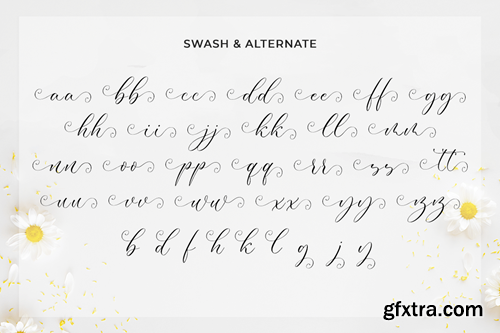 SWASH & ALTERNATE
aa bb cc dd ee ff gg
hh ii jj kk ll mm
nn oo pp qq rr ss tt
uu vv ww xx yy zz
b d f h k l g j y
gfxtra.com